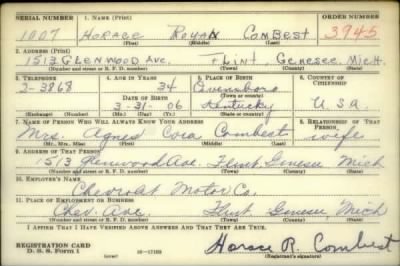 SERIAL NUMBER 1. NAME (Print) ORDER NUMBER
1007 HORACE ROYAN COMBEST 3945
(First) (Middle) (Last)
2. ADDRESS (Print)
1513 GLENWOOD AVE. FLINT GENESEE MICH.
(Number and street or R. F. D. number) (Town) (County) (State)
3. TELEPHONE 4. AGE IN YEARS 5. PLACE OF BIRTH 6. COUNTRY OF CITIZENSHIP
2-3868 34 Owensboro
(Town or county)
DATE OF BIRTH
3-31-06 Kentucky U.S.A.
(Exchange) (Number) (Mo.) (Day) (Yr.) (State or country)
7. NAME OF PERSON WHO WILL ALWAYS KNOW YOUR ADDRESS 8. RELATIONSHIP OF THAT PERSON
Mrs. Agnes Cora Combest wife
(Mr., Mrs., Miss) (First) (Middle) (Last)
9. ADDRESS OF THAT PERSON
1513 Glenwood Ave. Flint, Genesee Mich
(Number and street or R. F. D. number) (Town) (County) (State)
10. EMPLOYER'S NAME
Chevrolet Motor Co.
11. PLACE OF EMPLOYMENT OR BUSINESS
Chev. Ave. Flint Genesee, Mich
(Number and street or R. F. D. number) (Town) (County) (State)
I AFFIRM THAT I HAVE VERIFIED ABOVE ANSWERS AND THAT THEY ARE TRUE.
REGISTRATION CARD
D. S. S. Form 1 (over) Horace R. Combest
(Registrant's signature)